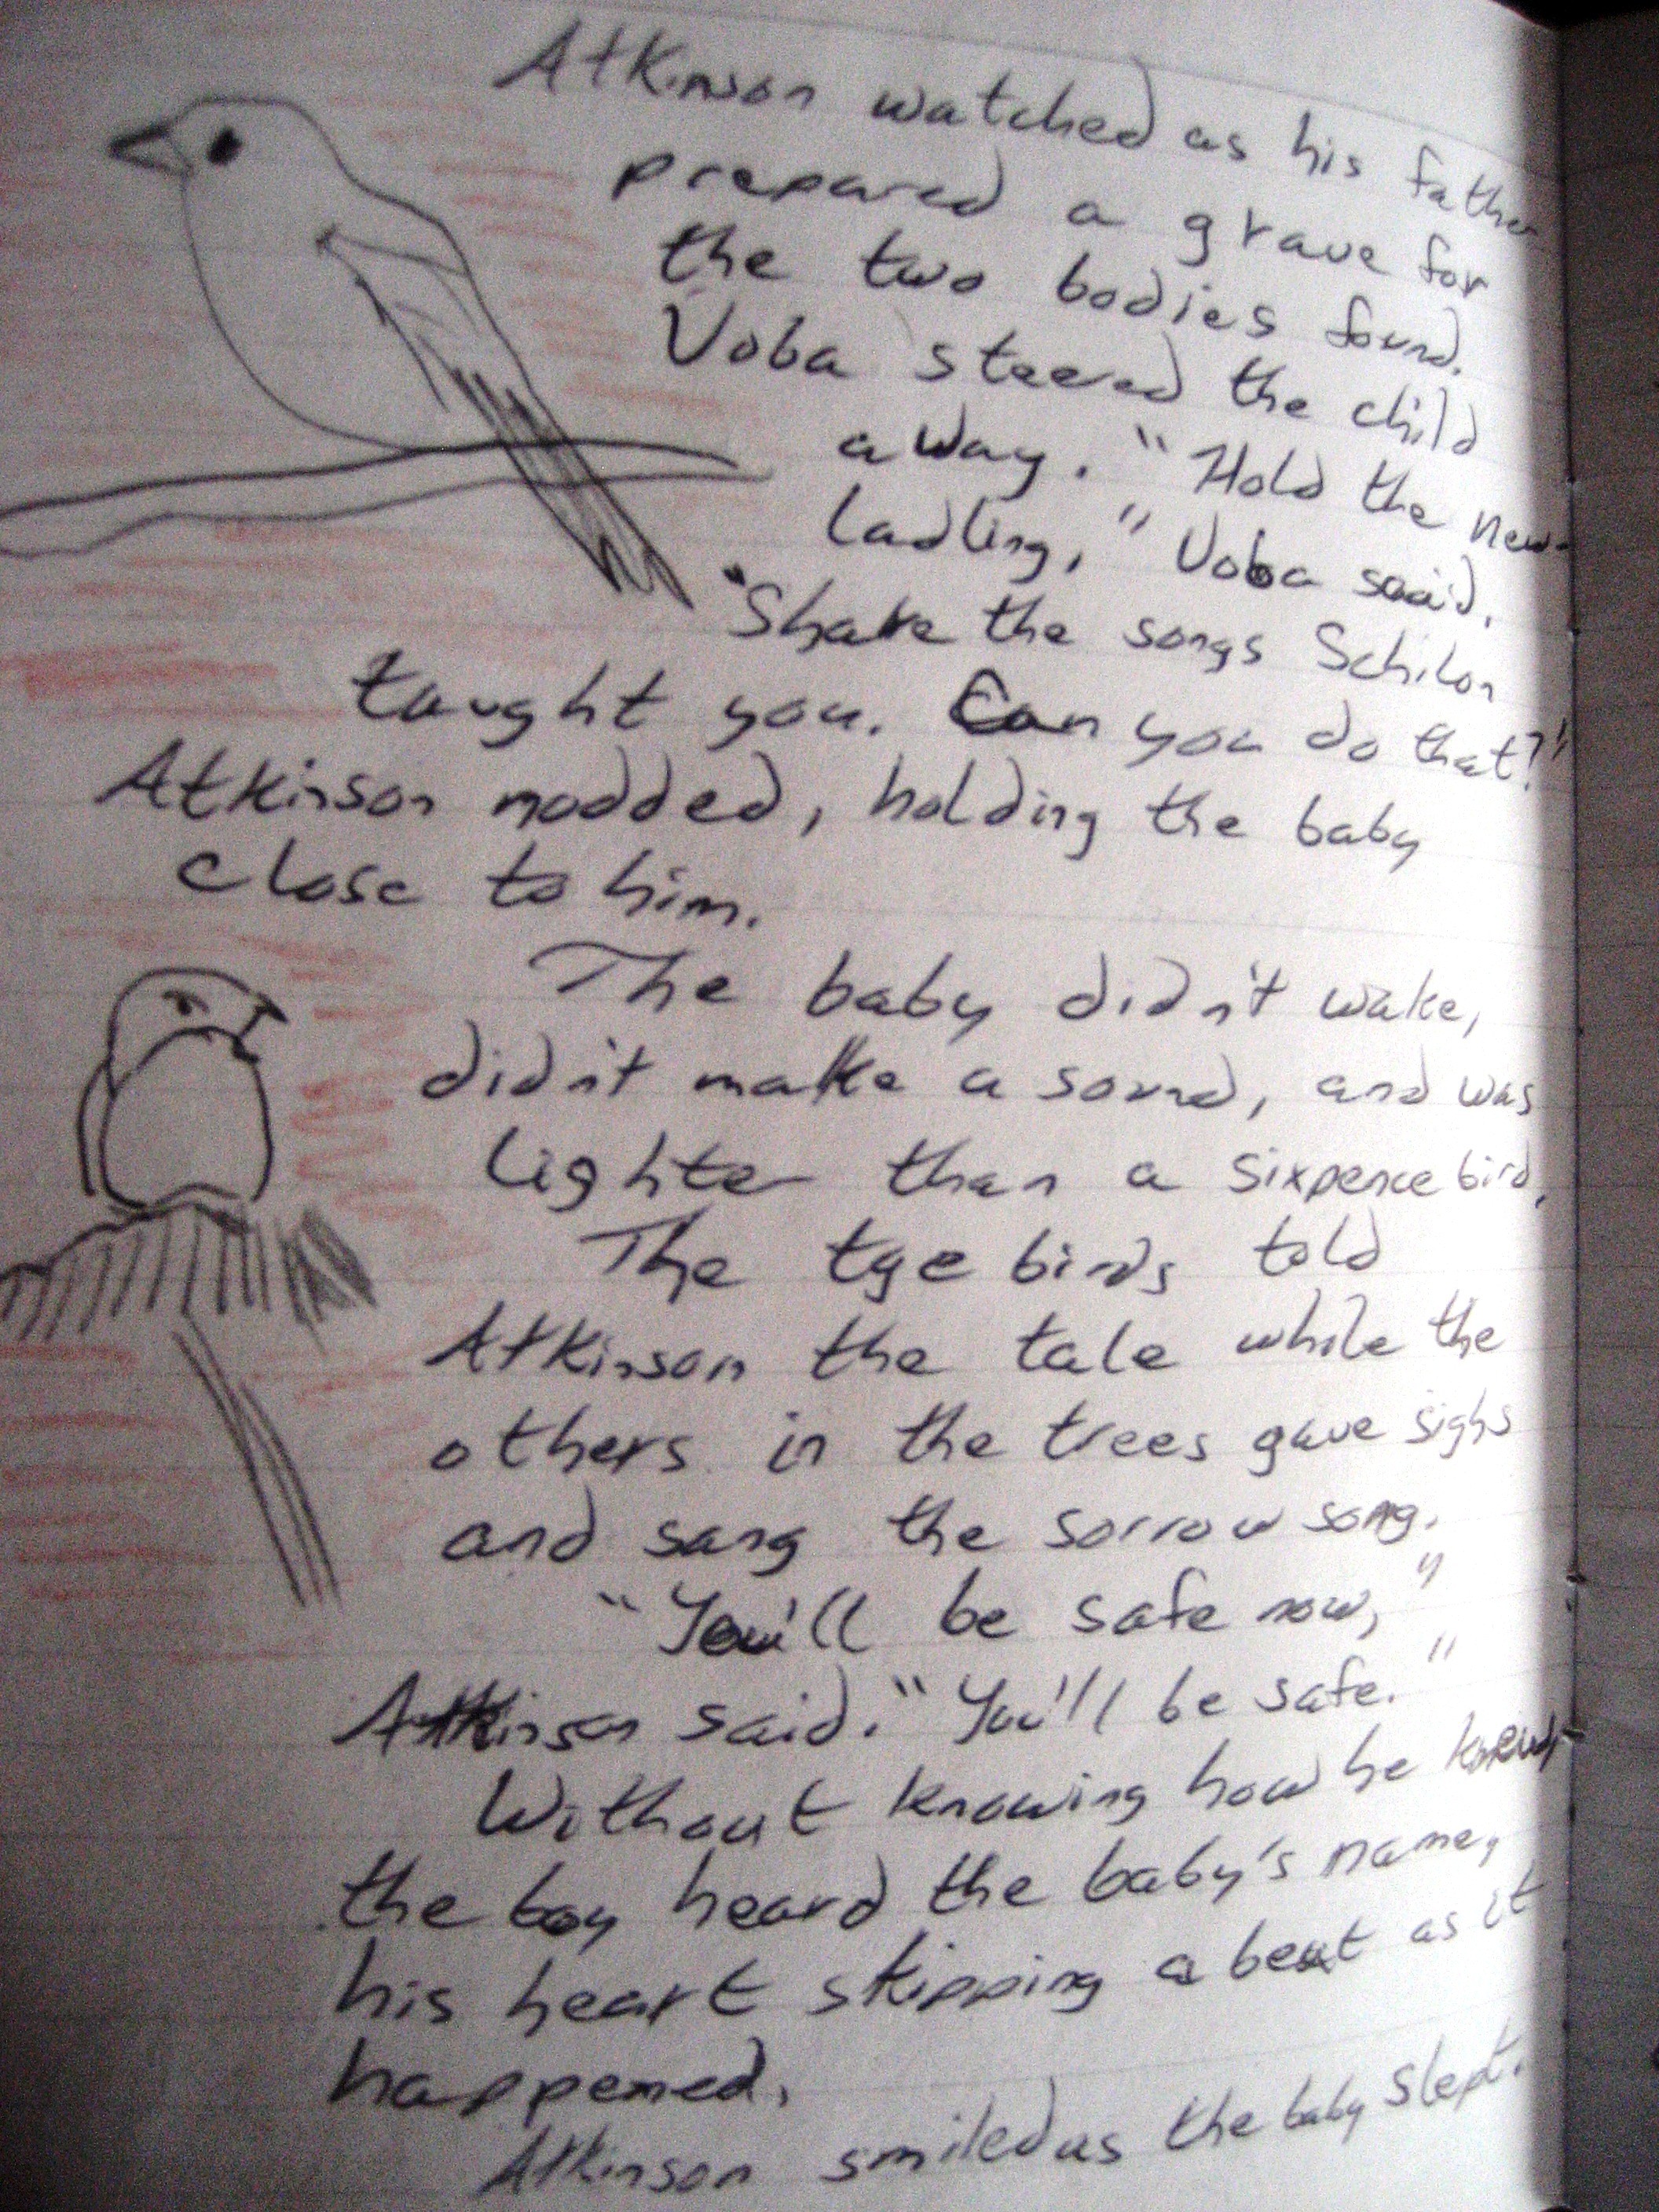 Atkinson watched as his father
prepared a grave for
the two bodies found.
Voba steered the child
away. "Hold the new-
ladling," Voba said.
"Share the songs Schilon
taught you. Can you do that?"
Atkinson nodded, holding the baby
close to him.
The baby didn't wake,
didn't make a sound, and was
lighter than a sixpence bird.
The tge birds told
Atkinson the tale while the
others in the trees gave sighs
and sang the sorrow song.
"You'll be safe now,"
Atkinson said. "You'll be safe."
Without knowing how he knew,
the boy heard the baby's name,
his heart skipping a beat as it
happened.
Atkinson smiled as the baby slept.